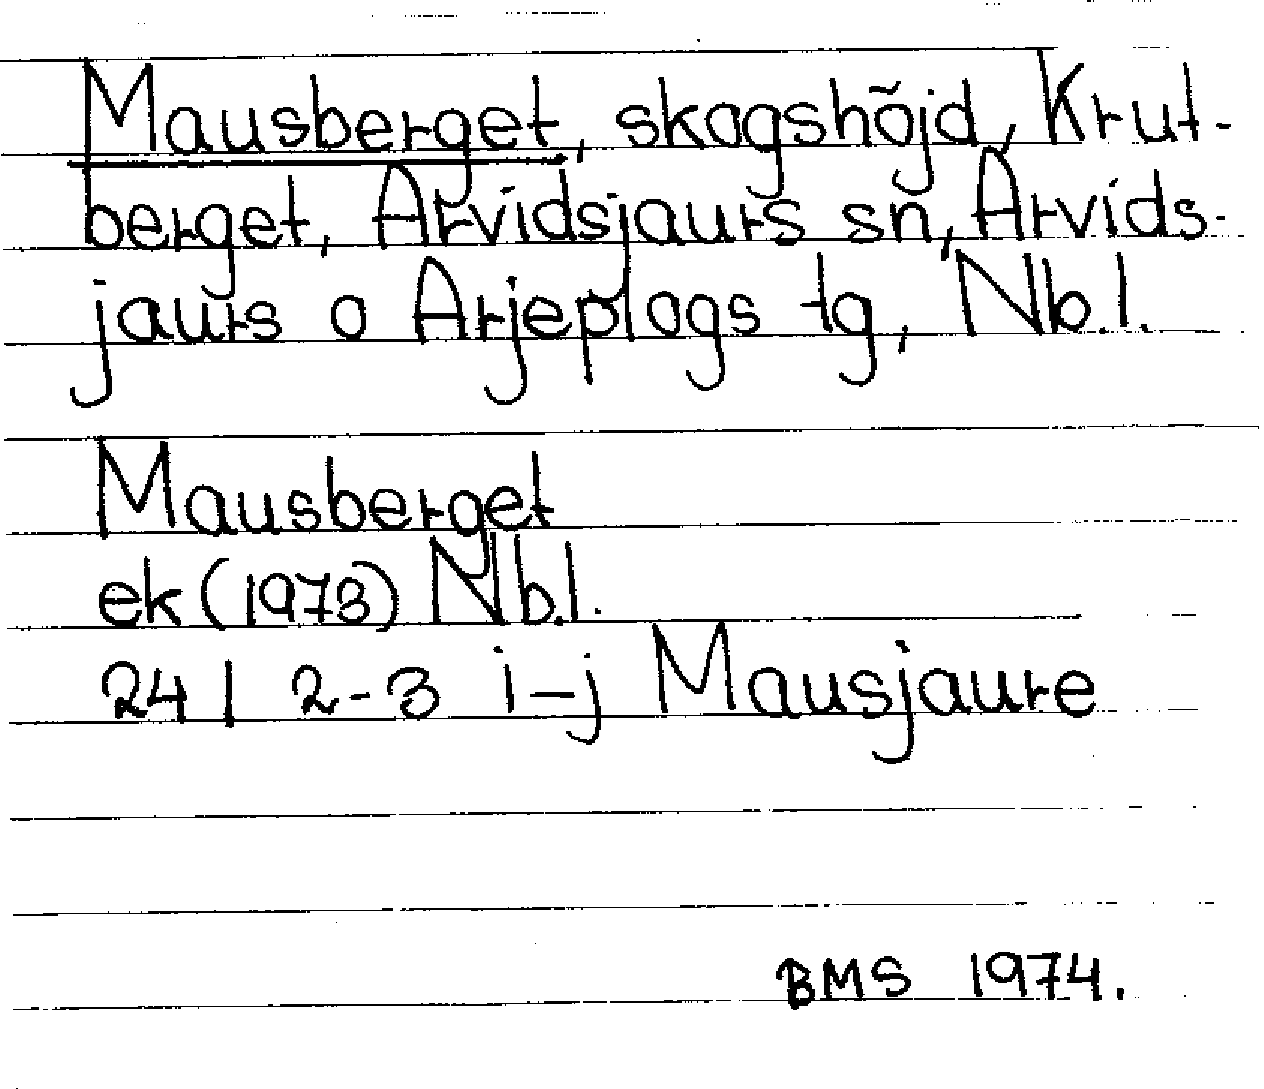 Mausberget, skogshöjd, Krut-
berget, Arvidsjaurs sn, Arvids-
jaurs o Arjeplogs tg, Nb.l.
Mausberget
ek (1973) Nb.l.
24 I 2-3 i-j Mausjaure
BMS 1974.